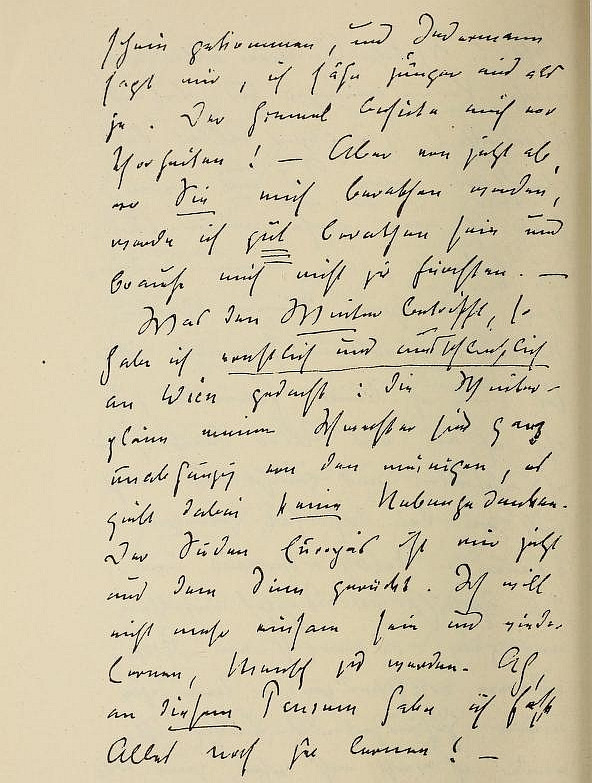 schein gekommen, und Jedermann
sagt mir, ich sähe jünger aus als
je. Der Himmel behüte mich vor
Thorheiten! — Aber von jetzt ab,
wo Sie mich berathen werden,
werde ich gut berathen sein und
brauche mich nicht zu fürchten. —
Was den Winter betrifft, so
habe ich ernstlich und ausschließlich
an Wien gedacht: die Winter-
pläne meiner Schwester sind ganz
unabhängig von den meinigen, es
giebt dabei keine Nebengedanken.
Der Süden Europas ist mir jetzt
aus dem Sinn gerückt. Ich will
nicht mehr einsam sein und wieder
lernen, Mensch zu werden. Ah,
an diesem Pensum habe ich fast
Alles noch zu lernen! —